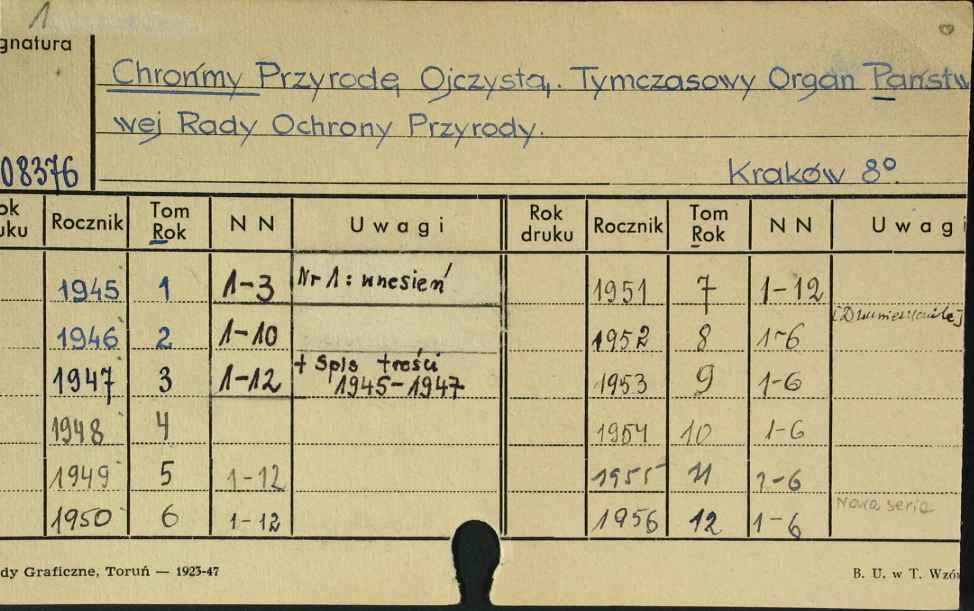 1
gnatura
Chrońmy Przyrodę Ojczystą. Tymczasowy Organ Państw
wej Rady Ochrony Przyrody.
08376
Kraków 8º
ok
uku Rocznik Tom
Rok NN Uwagi Rok
druku Rocznik Tom
Rok NN Uwagi
1945 1 1-3 Nr 1: wrzesień 1951 7 1-12
1946 2 1-10 1952 8 1-6
1947 3 1-12 + Spis treści
1945-1947 1953 9 1-6
1948 4 1954 10 1-6
1949 5 1-12 1955 11 1-6
1950 6 1-12 1956 12 1-6 Nowa seria
dy Graficzne, Toruń — 1923-47
B. U. w T. Wzó